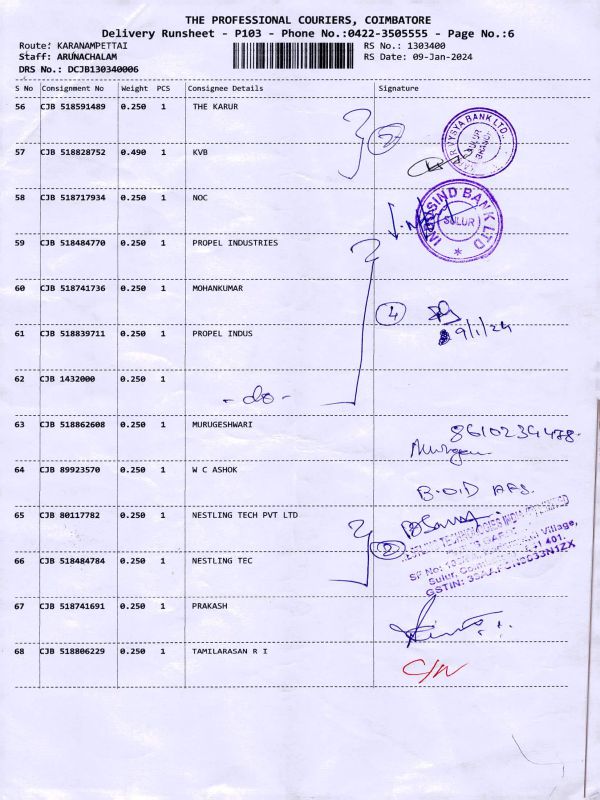 THE PROFESSIONAL COURIERS, COIMBATORE
Delivery Runsheet - P103 - Phone No.:0422-3505555 - Page No.:6
Route: KARANAMPETTAI RS No.: 1303400
Staff: ARUNACHALAM RS Date: 09-Jan-2024
DRS No.: DCJB130340006
S No Consignment No Weight PCS Consignee Details Signature
56 CJB 518591489 0.250 1 THE KARUR
2
VYSYA BANK LTD.
SULUR
BRANCH
57 CJB 518828752 0.490 1 KVB
58 CJB 518717934 0.250 1 NOC
INDUSIND BANK LTD
SULUR
59 CJB 518484770 0.250 1 PROPEL INDUSTRIES
60 CJB 518741736 0.250 1 MOHANKUMAR
4
9/1/24
61 CJB 518839711 0.250 1 PROPEL INDUS
62 CJB 1432000 0.250 1
- do -
63 CJB 518862608 0.250 1 MURUGESHWARI
8610234478
Murugan
64 CJB 89923570 0.250 1 W C ASHOK
65 CJB 80117782 0.250 1 NESTLING TECH PVT LTD
NESTLING TECHNOLOGIES INDIA
2
Village,
Sulur,
GSTIN:
66 CJB 518484784 0.250 1 NESTLING TEC
67 CJB 518741691 0.250 1 PRAKASH
68 CJB 518806229 0.250 1 TAMILARASAN R I
C/N